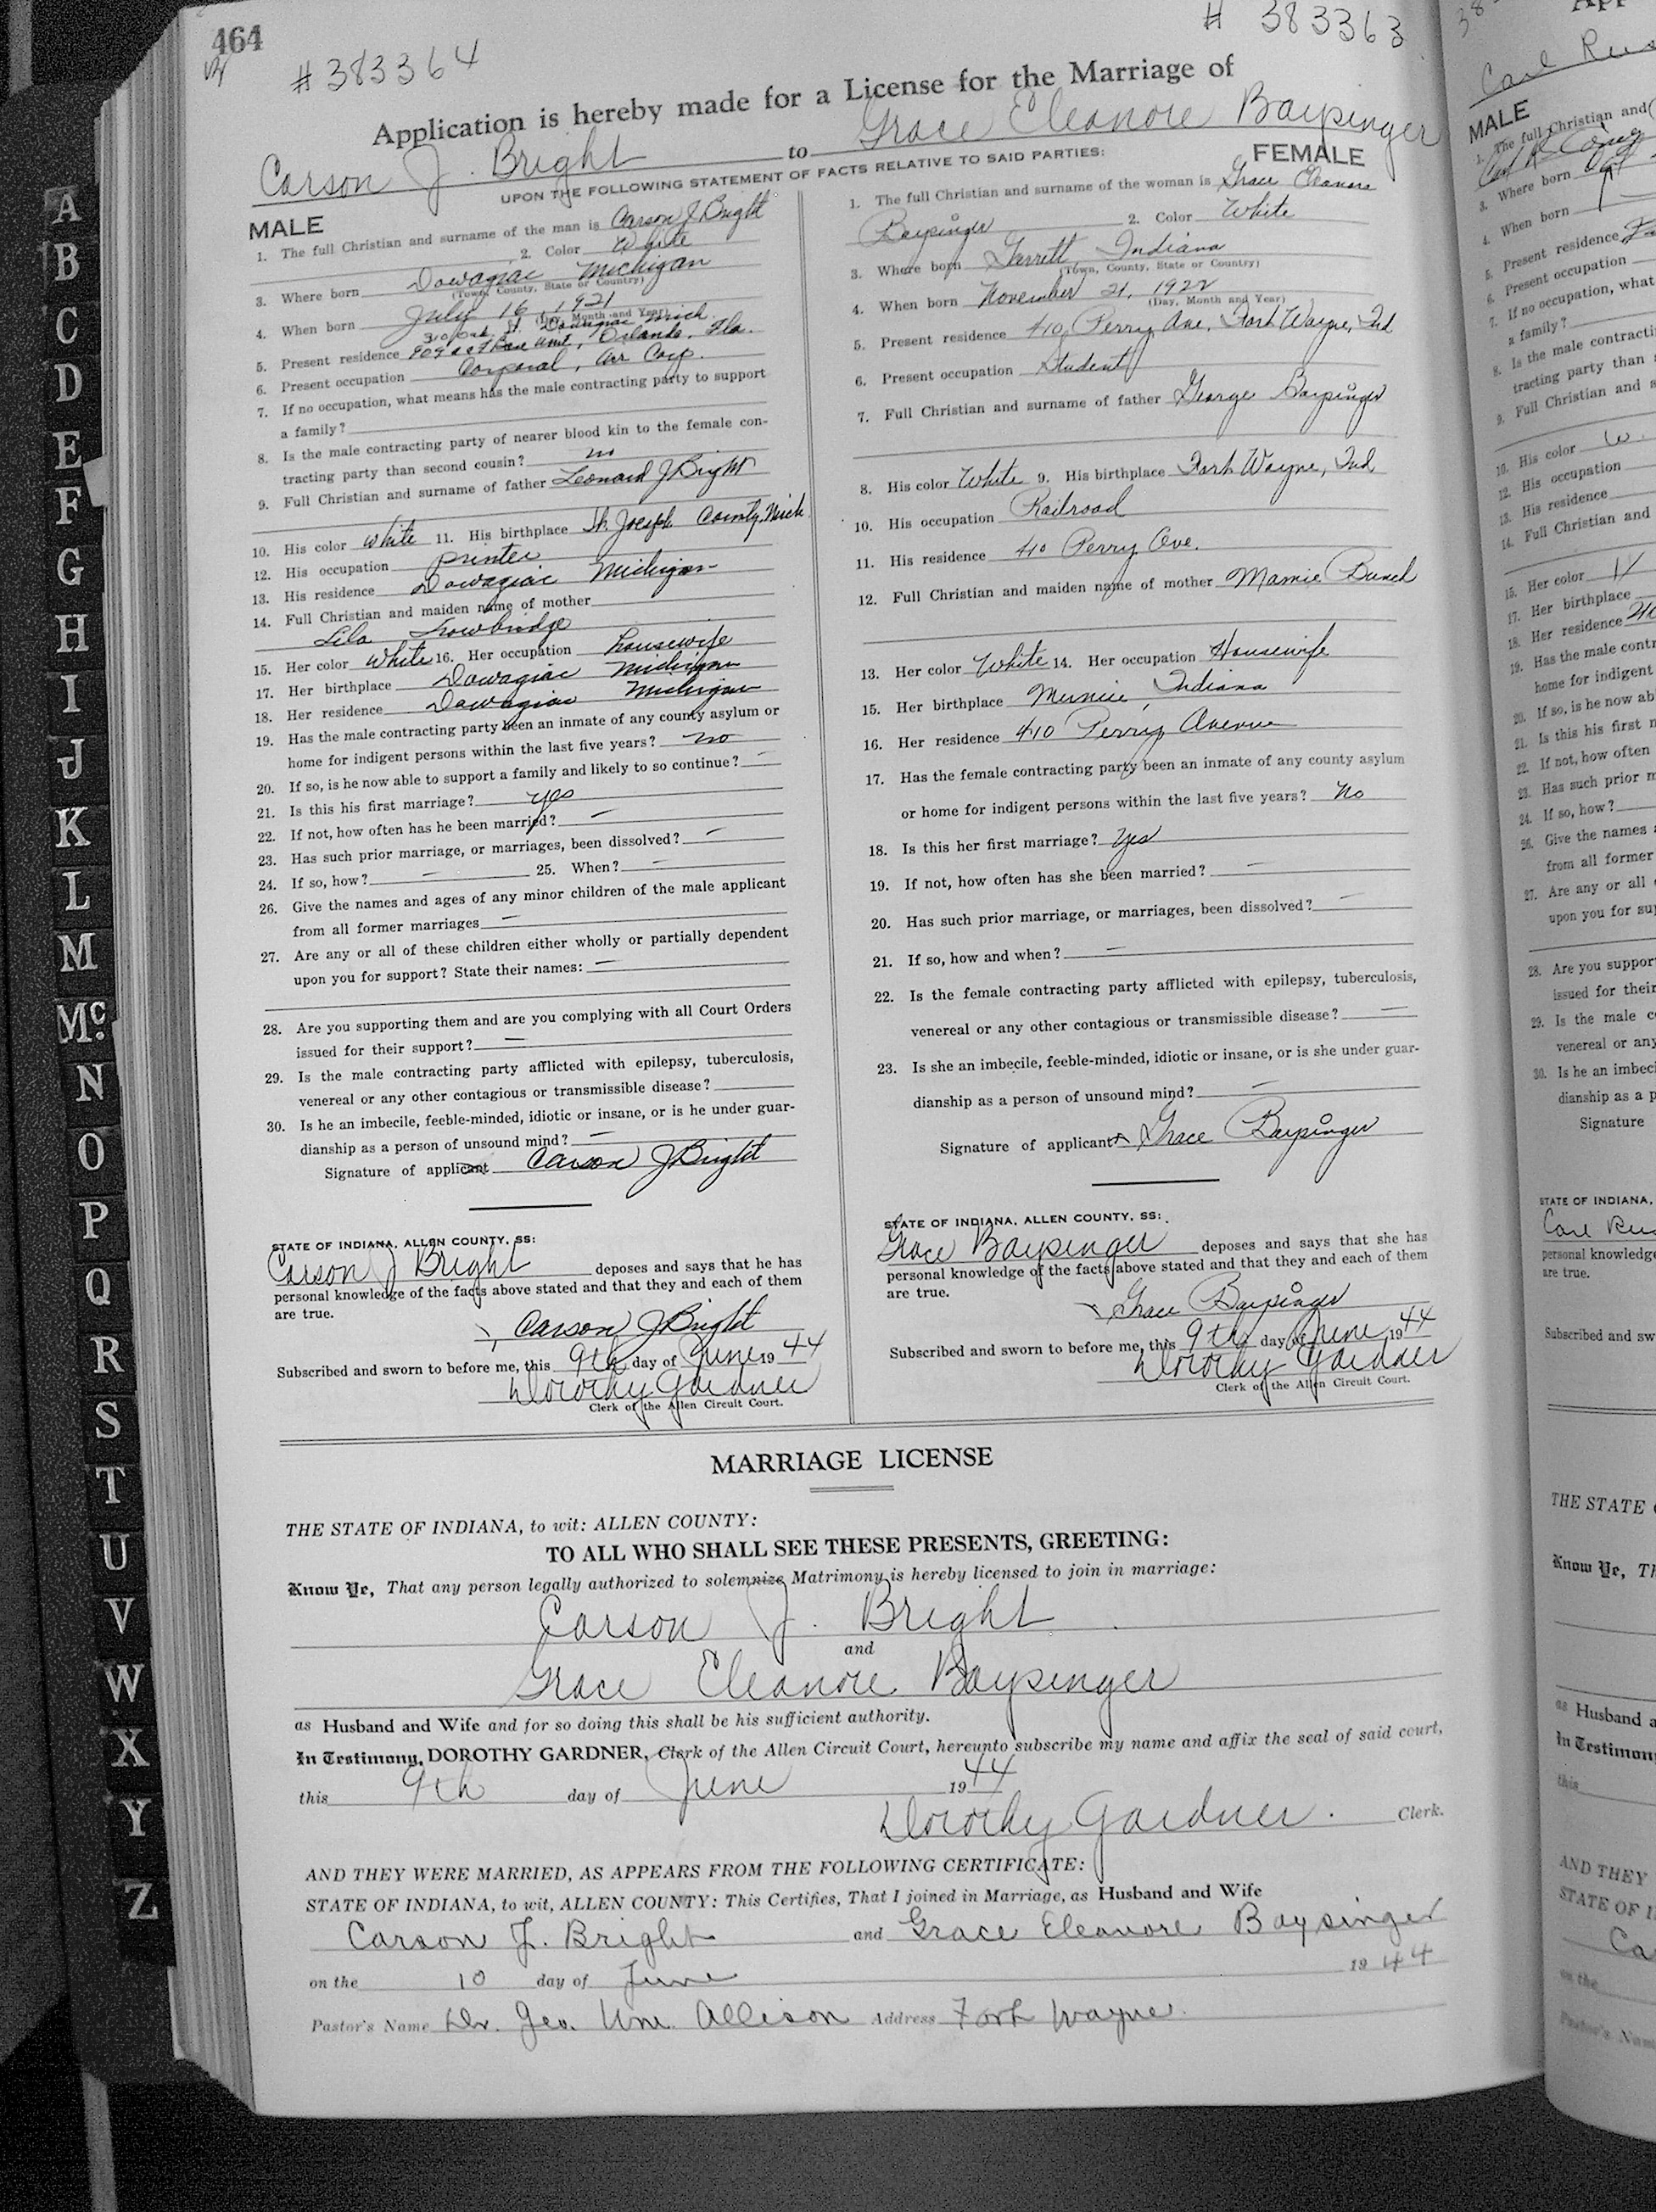 464
# 383364
# 383363
Application is hereby made for a License for the Marriage of
Carson J. Bright to Grace Eleanore Baysinger
UPON THE FOLLOWING STATEMENT OF FACTS RELATIVE TO SAID PARTIES:
MALE
1. The full Christian and surname of the man is Carson J Bright
2. Color White
3. Where born Dowagiac Michigan
(Town, County, State or Country)
4. When born July 16, 1921
(Day, Month and Year)
310 Oak St. Dowagiac Mich.
5. Present residence Base Unit, Orlando, Fla.
6. Present occupation Corporal, Air Corp.
7. If no occupation, what means has the male contracting party to support
a family?
8. Is the male contracting party of nearer blood kin to the female con-
tracting party than second cousin? no
9. Full Christian and surname of father Leonard J Bright
10. His color White 11. His birthplace St. Joesph County, Mich
12. His occupation printer
13. His residence Dowagiac Michigan
14. Full Christian and maiden name of mother
Lila Trowbridge
15. Her color White 16. Her occupation housewife
17. Her birthplace Dowagiac Michigan
18. Her residence Dowagiac Michigan
19. Has the male contracting party been an inmate of any county asylum or
home for indigent persons within the last five years? no
20. If so, is he now able to support a family and likely to so continue? —
21. Is this his first marriage? yes
22. If not, how often has he been married? —
23. Has such prior marriage, or marriages, been dissolved? —
24. If so, how? — 25. When? —
26. Give the names and ages of any minor children of the male applicant
from all former marriages —
27. Are any or all of these children either wholly or partially dependent
upon you for support? State their names: —
28. Are you supporting them and are you complying with all Court Orders
issued for their support? —
29. Is the male contracting party afflicted with epilepsy, tuberculosis,
venereal or any other contagious or transmissible disease?
30. Is he an imbecile, feeble-minded, idiotic or insane, or is he under guar-
dianship as a person of unsound mind? —
Signature of applicant Carson J Bright
STATE OF INDIANA, ALLEN COUNTY, SS:
Carson J Bright deposes and says that he has
personal knowledge of the facts above stated and that they and each of them
are true.
Carson J Bright
Subscribed and sworn to before me, this 9th day of June 1944
Dorothy Gardner
Clerk of the Allen Circuit Court.
FEMALE
1. The full Christian and surname of the woman is Grace Eleanore
Baysinger 2. Color White
3. Where born Garrett, Indiana
(Town, County, State or Country)
4. When born November 21, 1922
(Day, Month and Year)
5. Present residence 410 Perry Ave. Fort Wayne, Ind.
6. Present occupation Student
7. Full Christian and surname of father George Baysinger
8. His color White 9. His birthplace Fort Wayne, Ind
10. His occupation Railroad
11. His residence 410 Perry Ave.
12. Full Christian and maiden name of mother Mamie Bunch
13. Her color White 14. Her occupation Housewife
15. Her birthplace Muncie, Indiana
16. Her residence 410 Perry Avenue
17. Has the female contracting party been an inmate of any county asylum
or home for indigent persons within the last five years? No
18. Is this her first marriage? yes
19. If not, how often has she been married? —
20. Has such prior marriage, or marriages, been dissolved? —
21. If so, how and when? —
22. Is the female contracting party afflicted with epilepsy, tuberculosis,
venereal or any other contagious or transmissible disease? —
23. Is she an imbecile, feeble-minded, idiotic or insane, or is she under guar-
dianship as a person of unsound mind? —
Signature of applicant x Grace Baysinger
STATE OF INDIANA, ALLEN COUNTY, SS:
Grace Baysinger deposes and says that she has
personal knowledge of the facts above stated and that they and each of them
are true.
Grace Baysinger
Subscribed and sworn to before me, this 9th day of June 1944
Dorothy Gardner
Clerk of the Allen Circuit Court.
MARRIAGE LICENSE
THE STATE OF INDIANA, to wit: ALLEN COUNTY:
TO ALL WHO SHALL SEE THESE PRESENTS, GREETING:
Know Ye, That any person legally authorized to solemnize Matrimony is hereby licensed to join in marriage:
Carson J. Bright
and
Grace Eleanore Baysinger
as Husband and Wife and for so doing this shall be his sufficient authority.
In Testimony, DOROTHY GARDNER, Clerk of the Allen Circuit Court, hereunto subscribe my name and affix the seal of said court,
this 9th day of June 1944
Dorothy Gardner. Clerk.
AND THEY WERE MARRIED, AS APPEARS FROM THE FOLLOWING CERTIFICATE:
STATE OF INDIANA, to wit, ALLEN COUNTY: This Certifies, That I joined in Marriage, as Husband and Wife
Carson J. Bright and Grace Eleanore Baysinger
on the 10 day of June 1944
Pastor's Name Dr. Geo. Wm. Allison Address Fort Wayne.
A
B
C
D
E
F
G
H
I
J
K
L
M
Mc
N
O
P
Q
R
S
T
U
V
W
X
Y
Z
MALE
1. The full Christian and
3. Where born
4. When born
5. Present residence
6. Present occupation
7. If no occupation, what
a family?
8. Is the male contracti
tracting party than
9. Full Christian and s
10. His color W.
12. His occupation
13. His residence
14. Full Christian and
15. Her color W
17. Her birthplace
18. Her residence
19. Has the male contr
home for indigent
20. If so, is he now ab
21. Is this his first m
22. If not, how often
23. Has such prior m
24. If so, how?
26. Give the names
from all former
27. Are any or all
upon you for su
28. Are you suppor
issued for their
29. Is the male c
venereal or any
30. Is he an imbec
dianship as a p
Signature
STATE OF INDIANA,
personal knowledge
are true.
Subscribed and sw
THE STATE
Know Ye, Th
as Husband a
In Testimony
this
AND THEY
STATE OF I
Ca
on the
Pastor's Nam